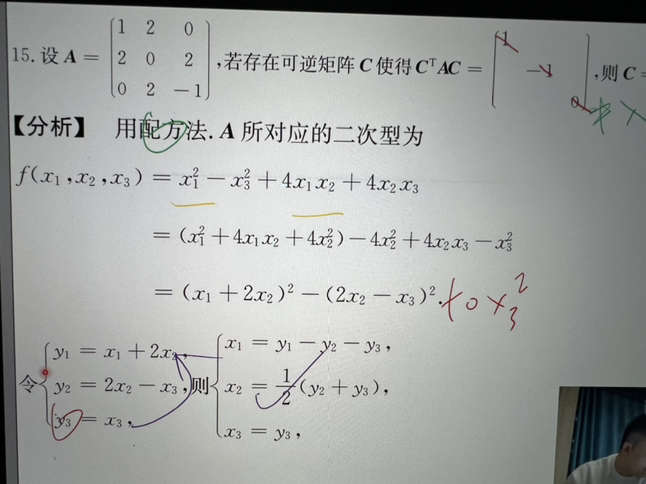 15. 设 A = [1 2 0; 2 0 2; 0 2 −1], 若存在可逆矩阵 C 使得 CᵀAC = [1 −1 0], 则 C =
【分析】 用配方法. A 所对应的二次型为
f(x₁, x₂, x₃) = x₁² − x₃² + 4x₁x₂ + 4x₂x₃
= (x₁² + 4x₁x₂ + 4x₂²) − 4x₂² + 4x₂x₃ − x₃²
= (x₁ + 2x₂)² − (2x₂ − x₃)². +0x₃²
令 { y₁ = x₁ + 2x₂, y₂ = 2x₂ − x₃, y₃ = x₃, 则 { x₁ = y₁ − y₂ − y₃, x₂ = 1/2 (y₂ + y₃), x₃ = y₃,